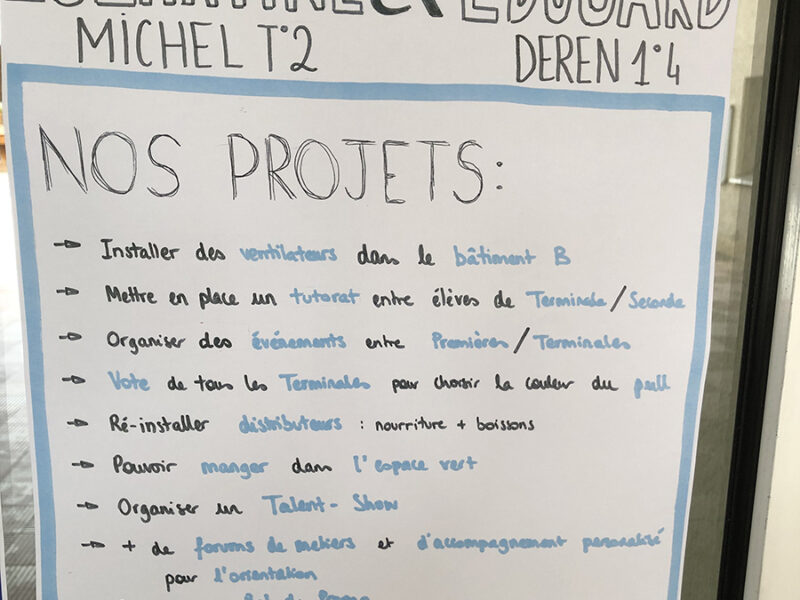 & EDOUARD
MICHEL T°2
DEREN 1°4
NOS PROJETS:
→ Installer des ventilateurs dans le bâtiment B
→ Mettre en place un tutorat entre élèves de Terminale/Seconde
→ Organiser des événements entre Premières/Terminales
→ Vote de tous les Terminales pour choisir la couleur du pull
→ Ré-installer distributeurs : nourriture + boissons
→ Pouvoir manger dans l'espace vert
→ Organiser un Talent-Show
→ + de forums de métiers et d'accompagnement personalisé
pour l'orientation